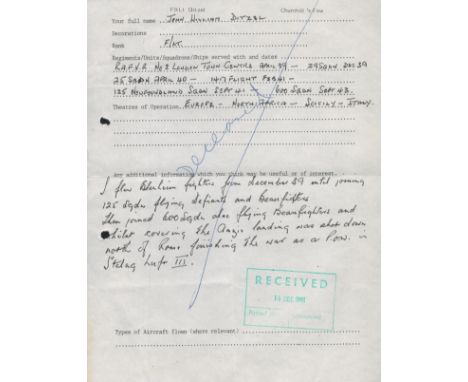 Your full name JOHN WILLIAM DITZEL
Decorations
Rank F/LT.
Regiments/Units/Squadrons/Ships served with and dates
R.A.F.V.R No 2 LONDON TOWN CENTRE APRIL 39 — 29 SQDN DEC 39
25 SQDN APRIL 40 — 1417 FLIGHT FEB 41 —
125 NEWFOUNDLAND SQDN SEPT 41 — 600 SQDN SEPT 43.
Theatres of Operation. EUROPE — NORTH AFRICA — SICILY — ITALY.
Deceased
Any additional information which you think may be useful or of interest.
I flew Blenheim fighters from december 39 until joining
125 Sqdn flying defiants and beaufighters
then joined 600 Sqdn also flying Beaufighters and
whilst covering the Anzio landing was shot down
north of Rome finishing the war as a P.o.w. in
Stalag Luft III.
RECEIVED
DEC 1991
Types of Aircraft flown (where relevant)